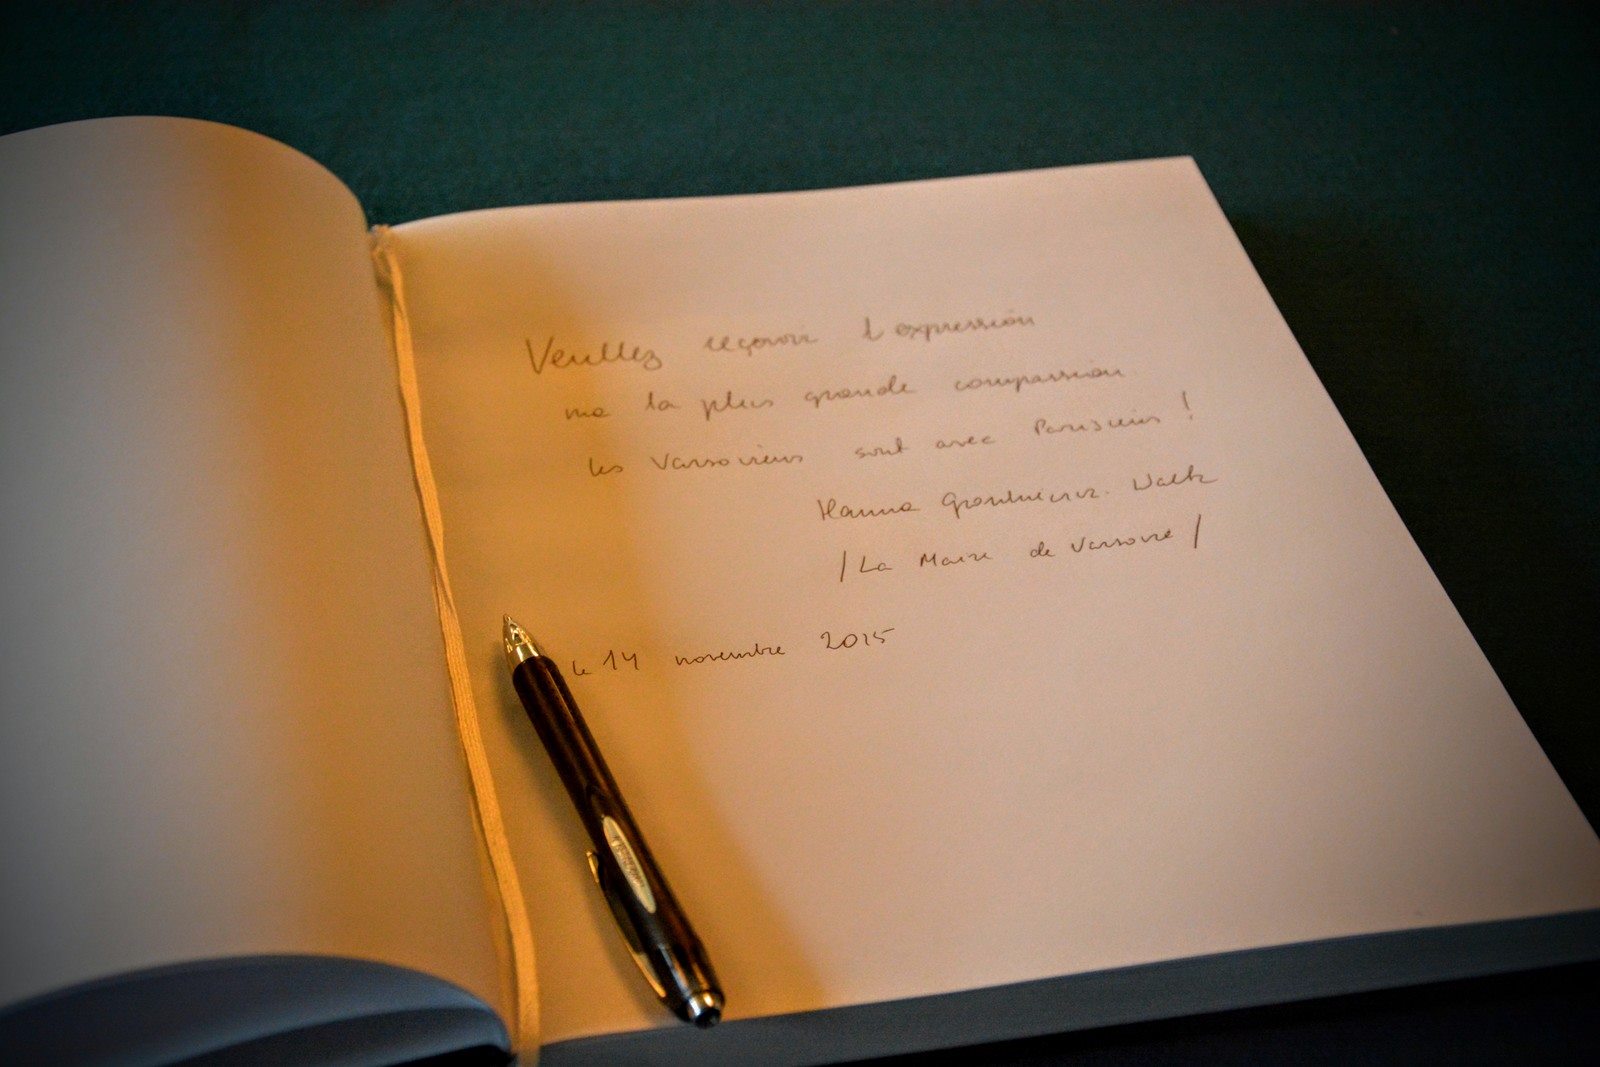 Veuillez reçevoir l'expression
ma la plus grande compassion
les Varsoviens sont avec Parisiens !
Hanna Gronkiewicz-Waltz
/La Maire de Varsovie/
le 14 novembre 2015